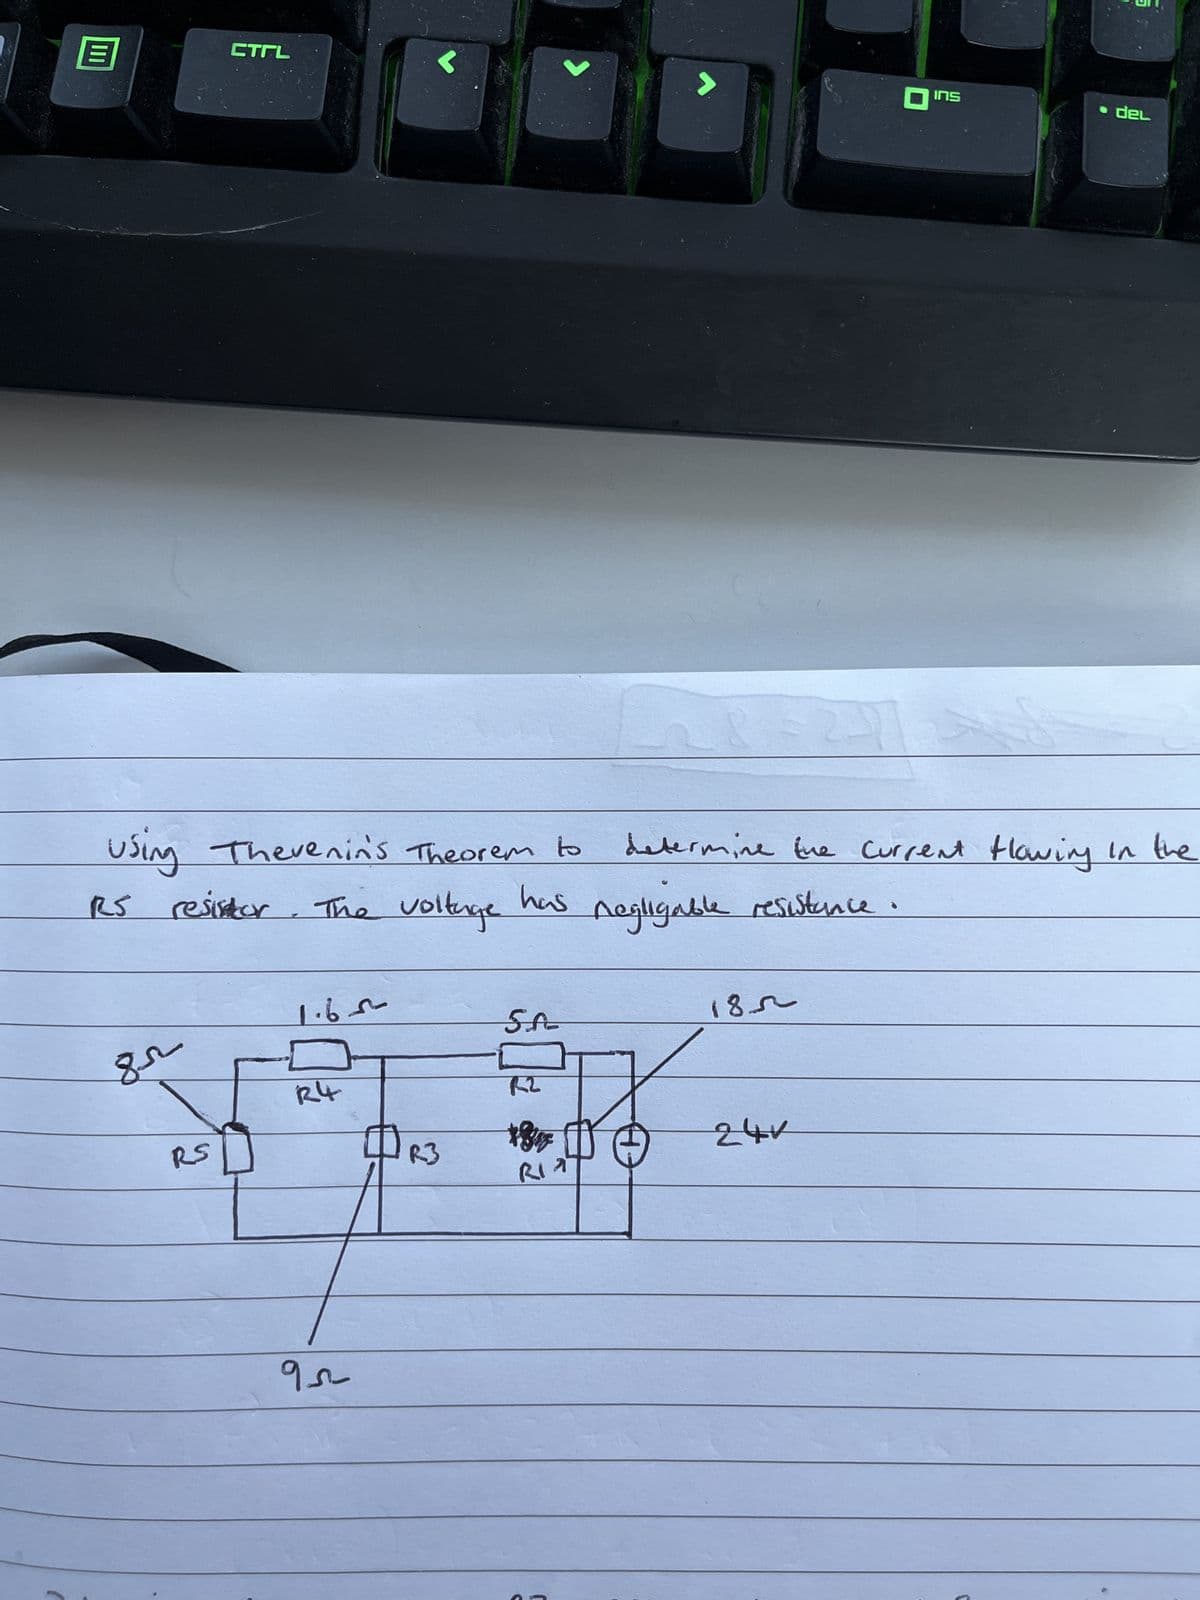 CTRL
ins
del
Using Thevenin's Theorem to determine the current flowing in the
R5 resistor. The voltage has negligable resistance.
1.6Ω
5Ω
18Ω
8Ω
R4
R2
R5
R3
R1
24V
9Ω